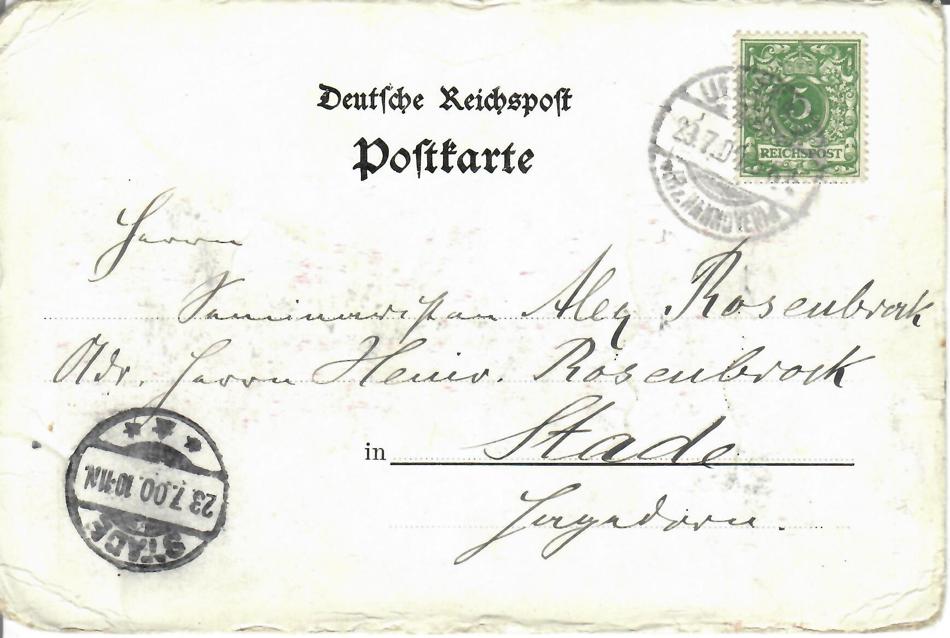 Deutsche Reichspost
Postkarte
5
REICHSPOST
23.7.0
(BZ. HANNOVER)
Herrn
Seminaristen Alex Rosenbrock
Adr. Herrn Heinr. Rosenbrock
in Stade
Hagedorn.
STADE
23.7.00.10-11N.